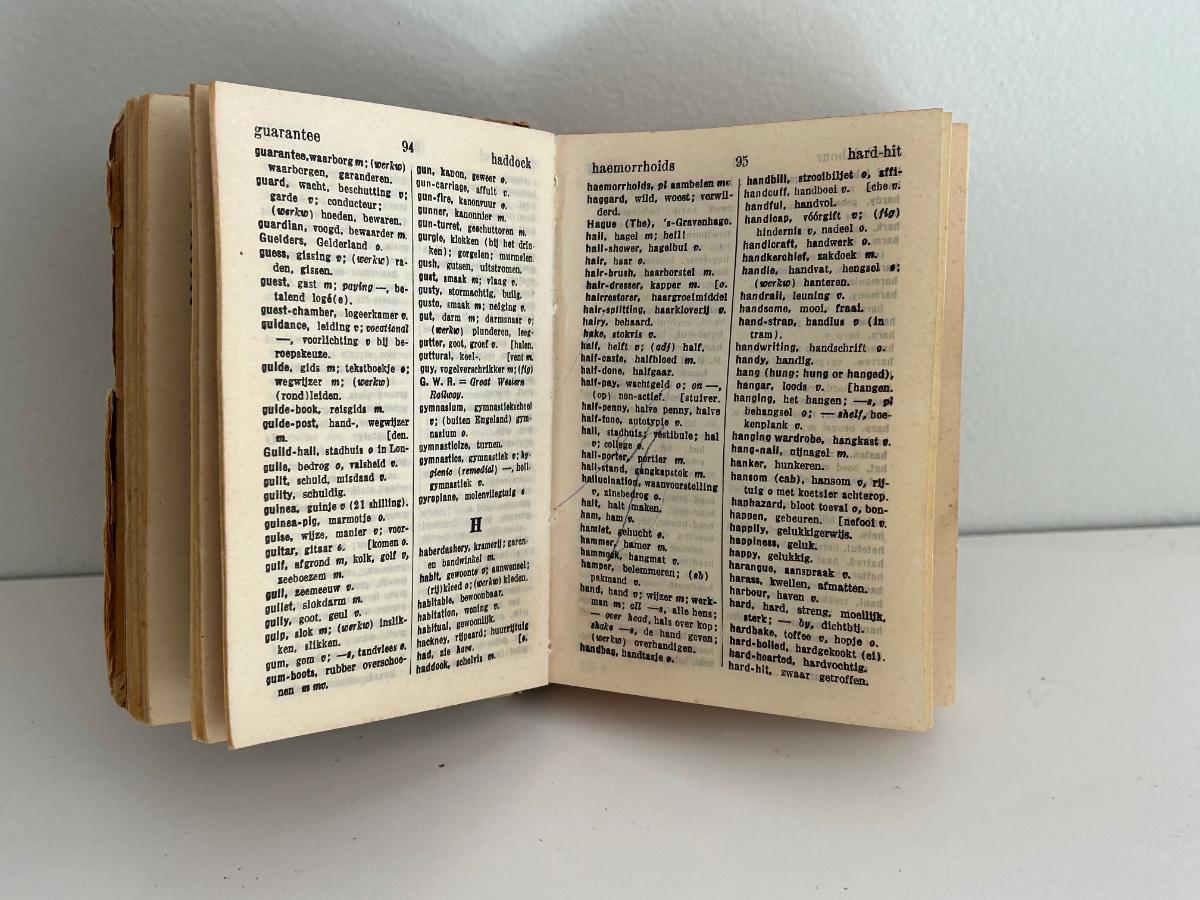 guarantee
94
haddock
guarantee, waarborg m; (werkw)
waarborgen, garanderen.
guard, wacht, beschutting v;
garde v; conducteur;
(werkw) hoeden, bewaren.
guardian, voogd, bewaarder m.
Guelders, Gelderland o.
guess, gissing v; (werkw) ra-
den, gissen.
guest, gast m; paying —, be-
talend logé(e).
guest-chamber, logeerkamer v.
guidance, leiding v; vocational
—, voorlichting v bij be-
roepskeuze.
guide, gids m; tekstboekje o;
wegwijzer m; (werkw)
(rond)leiden.
guide-book, reisgids m.
guide-post, hand-, wegwijzer
m. [den.
Guild-hall, stadhuis o in Lon-
guile, bedrog o, valsheid v.
guilt, schuld, misdaad v.
guilty, schuldig.
guinea, guinje v (21 shilling).
guinea-pig, marmotje o.
guise, wijze, manier v; voor-
guitar, gitaar v. [komen o.
gulf, afgrond m, kolk, golf v,
zeeboezem m.
gull, zeemeeuw v.
gullet, slokdarm m.
gully, goot, geul v.
gulp, slok m; (werkw) inslik-
ken, slikken.
gum, gom v; —s, tandvlees o.
gum-boots, rubber overschoe-
nen m mv.
gun, kanon, geweer o.
gun-carriage, affuit v.
gun-fire, kanonvuur o.
gunner, kanonnier m.
gun-turret, geschuttoren m.
gurgle, klokken (bij het drin-
ken); gorgelen; murmelen.
gush, gutsen, uitstromen.
gust, smaak m; vlaag v.
gusty, stormachtig, builg.
gusto, smaak m; neiging v.
gut, darm m; darmsnaar v;
(werkw) plunderen, leeg-
gutter, goot, groef v. [halen.
guttural, keel-. [vent m.
guy, vogelverschrikker m; (fig)
G. W. R. = Great Western
Railway.
gymnasium, gymnastiekschool
v; (buiten Engeland) gym-
nasium o.
gymnasticize, turnen.
gymnastics, gymnastiek v; hy-
gienic (remedial) —, heil-
gymnastiek v.
gyroplane, molenvliegtuig o
H
haberdashery, kramerij; garen-
en bandwinkel m.
habit, gewoonte v; aanwensel;
(rij)kleed o; (werkw) kleden.
habitable, bewoonbaar.
habitation, woning v.
habitual, gewoonlijk.
hackney, rijpaard; huurrijtuig
had, zie have. [o.
haddock, schelvis m.
haemorrhoids
95
hard-hit
haemorrhoids, pl aambeien mv.
haggard, wild, woest; verwil-
derd.
Hague (The), 's-Gravenhage.
hail, hagel m; heil!
hail-shower, hagelbui v.
hair, haar o.
hair-brush, haarborstel m.
hair-dresser, kapper m. [o.
hairrestorer, haargroeimiddel
hair-splitting, haarkloverij v.
hairy, behaard.
hake, stokvis v.
half, helft v; (adj) half.
half-caste, halfbloed m.
half-done, halfgaar.
half-pay, wachtgeld o; on —,
(op) non-actief. [stuiver.
half-penny, halve penny, halve
half-tone, autotypie v.
hall, stadhuis; vestibule; hal
v; college o.
hall-porter, portier m.
hall-stand, gangkapstok m.
hallucination, waanvoorstelling
v, zinsbedrog o.
halt, halt maken.
ham, ham v.
hamlet, gehucht o.
hammer, hamer m.
hammock, hangmat v.
hamper, belemmeren; (sb)
pakmand v.
hand, hand v; wijzer m; werk-
man m; all —s, alle hens;
— over head, hals over kop;
shake —s, de hand geven;
(werkw) overhandigen.
handbag, handtasje o.
handbill, strooibiljet o, affi-
handcuff, handboei v. [che v.
handful, handvol.
handicap, vóórgift v; (fig)
hindernis v, nadeel o.
handicraft, handwerk o.
handkerchief, zakdoek m.
handle, handvat, hengsel o;
(werkw) hanteren.
handrail, leuning v.
handsome, mooi, fraai.
hand-strap, handlus v (in
tram).
handwriting, handschrift o.
handy, handig.
hang (hung; hung or hanged),
hangar, loods v. [hangen.
hanging, het hangen; —s, pl
behangsel o; — shelf, boe-
kenplank v.
hanging wardrobe, hangkast v.
hang-nail, nijnagel m.
hanker, hunkeren.
hansom (cab), hansom v, rij-
tuig o met koetsier achterop.
haphazard, bloot toeval o, bon-
happen, gebeuren. [nefooi v.
happily, gelukkigerwijs.
happiness, geluk.
happy, gelukkig.
harangue, aanspraak v.
harass, kwellen, afmatten.
harbour, haven v.
hard, hard, streng, moeilijk,
sterk; — by, dichtbij.
hardbake, toffee v, hopje o.
hard-boiled, hardgekookt (ei).
hard-hearted, hardvochtig.
hard-hit, zwaar getroffen.